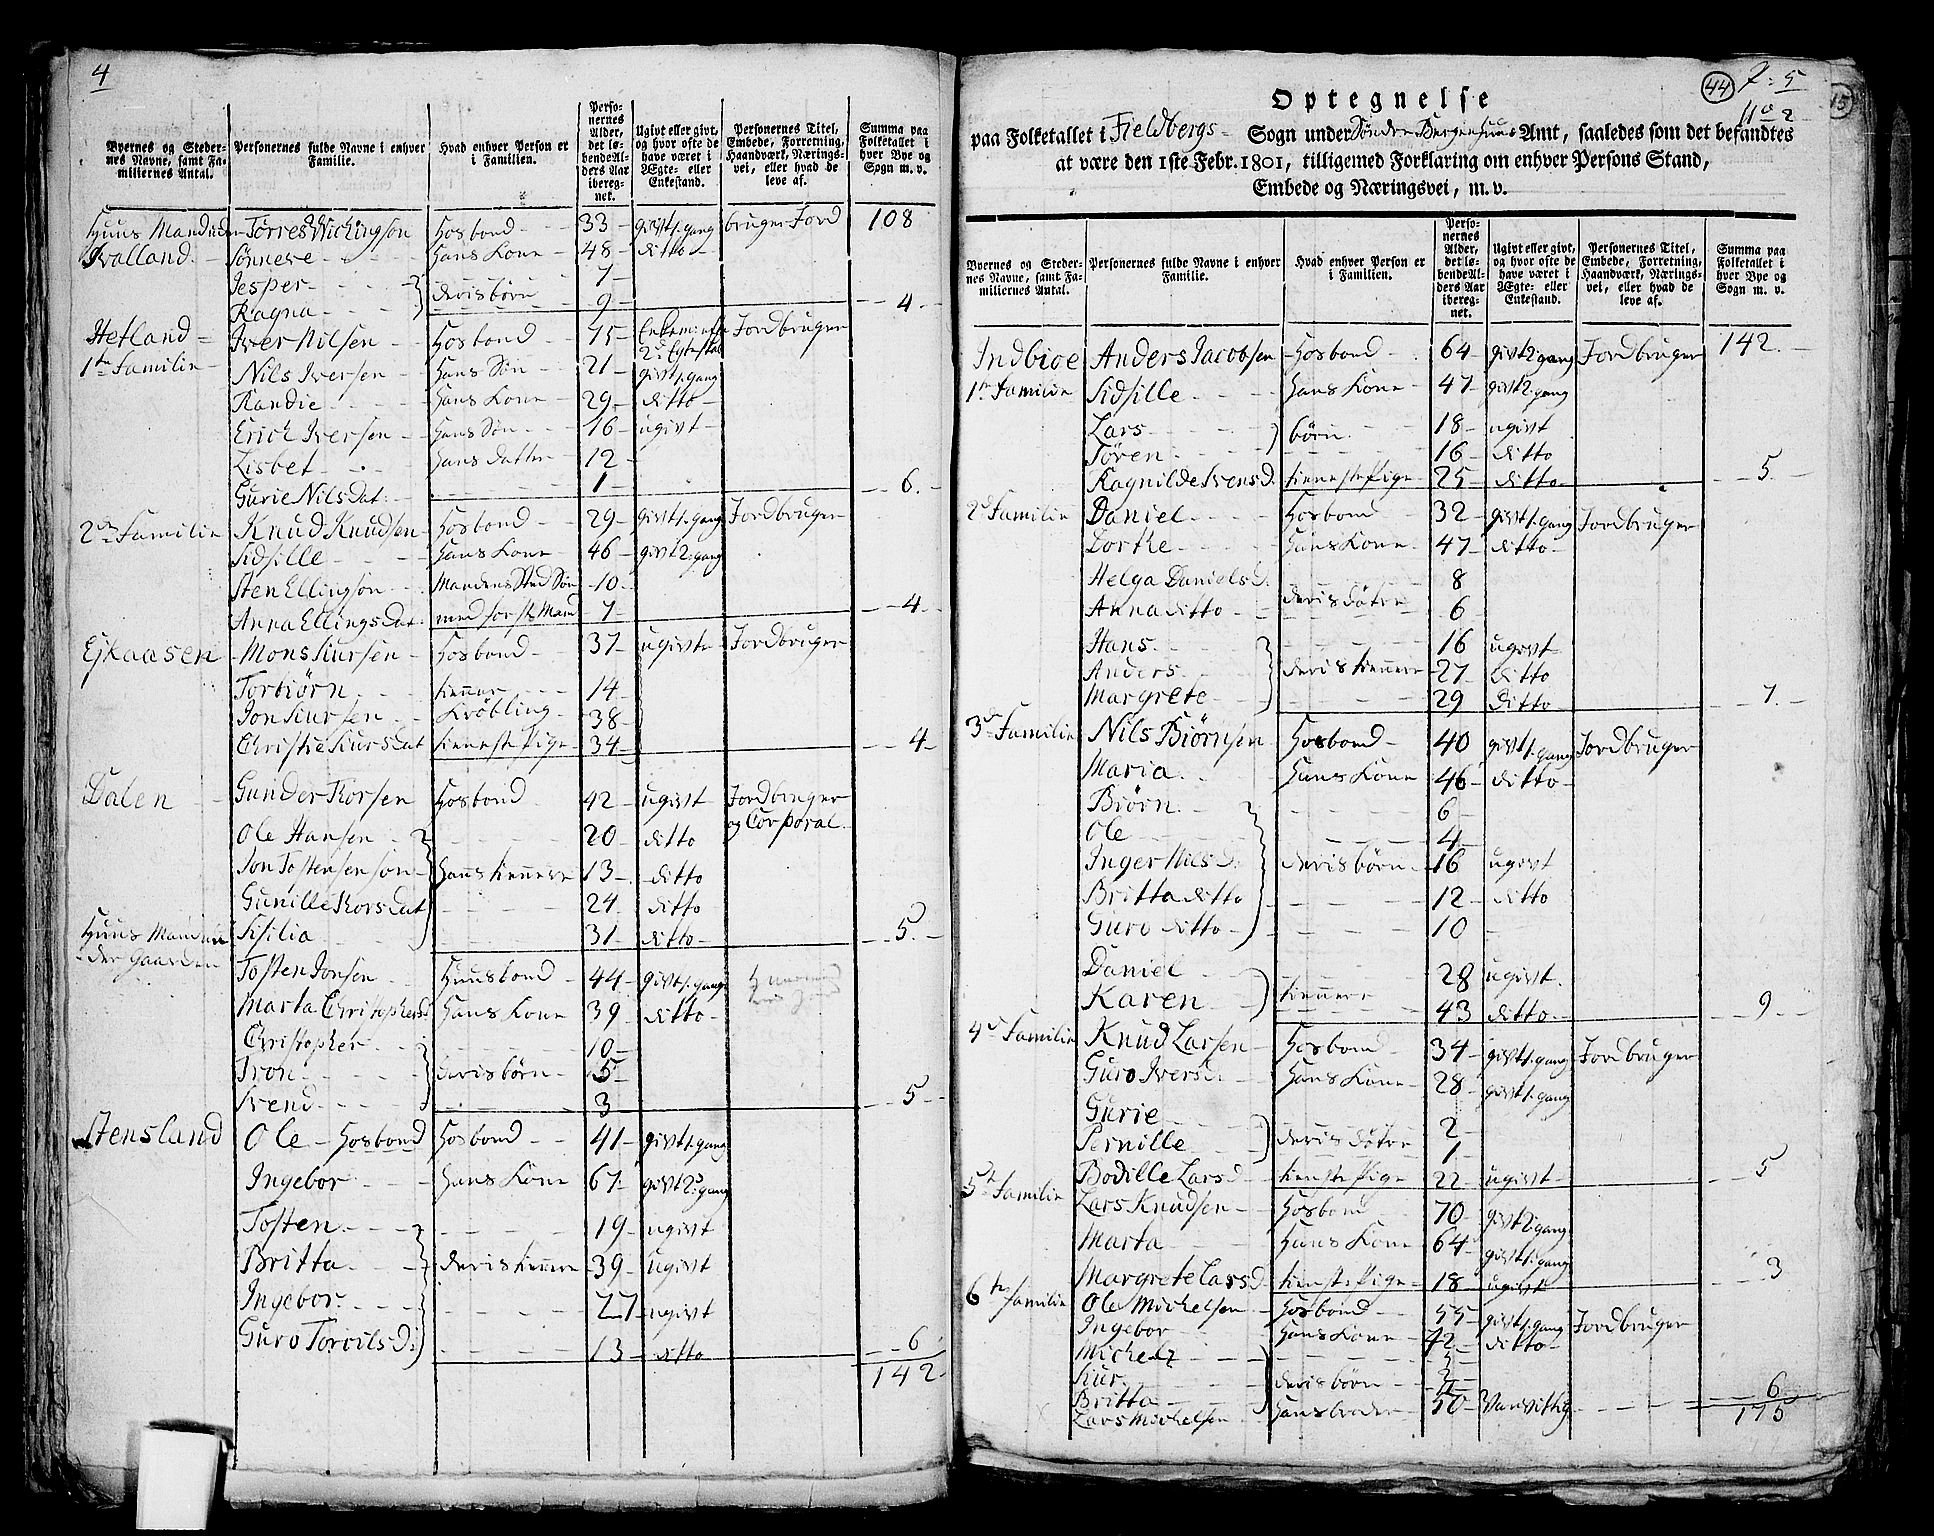 4
Byernes og Steder-
nes Navne, samt Fa-
miliernes Antal.
Personernes fulde Navne i enhver
Familie.
Hvad enhver Person er
i Familien.
Perso-
nernes
Alder,
det lø-
bende Al-
ders Aar
ibereg-
net.
Ugivt eller givt,
og hvor ofte de
have været i
Ægte- eller
Enkestand.
Personernes Titel,
Embede, Forretning,
Haandværk, Nærings-
vei, eller hvad de
leve af.
Summa paa
Folketallet i
hver Bye og
Sogn m. v.
Huus Mand Torres Wichingson Hosbond 33 givt 1. gang bruger Jord 108
Qvalland Sønneve Hans Kone 48 ditto
Jesper 7
Ragna deris børn 9 4
Hetland Iver Nilsen Hosbond 75 Jordbruger
1te Familie Nils Iversen Hans Søn 21 givt 1. gang
Randie Hans Kone 29 ditto
Erich Iversen Hans Søn 16 ugivt
Lisbet Hans datter 12
Gurie Nilsdat: 1 6
2den Familie Knud Knudsen Hosbond 29 givt 1. gang Jordbruger
Sidsille Hans Kone 46 givt 2. gang
Sten Ellingson Mandens Sted Søn 10
Anna Ellingsdat: med første Mand 7 4
Ejkaasen Mons Siursen Hosbond 37 ugivt Jordbruger
Torbiörn tienner 14
Jon Siursen Krøbling 38
Christie Siursdat tieneste Pige 34 4
Dalen Gunder Korsen Hosbond 42 ugivt Jordbruger
og Corporal
Ole Hansen 20 ditto
Jon Tostensenson Hans tiennere 13 ditto
Gunille Korsdat 24 ditto
Sisilia 31 ditto 5
Huus Mand un-
der gaarden
Tosten Jonsen Huusbond 44 givt 1. gang
Marta Christophersd: Hans Kone 39 ditto
Christopher 10
Iron deris børn 5
Svend 3 5
Stensland Ole Hosbond Hosbond 41 givt 1. gang
Ingebor Hans Kone 67 givt 2. gang
Tosten 19 ugivt
Britta deris tiennere 39 ugivt
Ingebor 27 ugivt
Guro Torcilsd: 13 ditto 6
142
44
15
Optegnelse
paa Folketallet i Fieldbergs Sogn under Sönder Bergenhuus Amt, saaledes som det befandtes
at være den 1ste Febr. 1801, tilligemed Forklaring om enhver Persons Stand,
Embede og Næringsvei, m. v.
Byernes og Steder-
nes Navne, samt Fa-
miliernes Antal.
Personernes fulde Navne i enhver
Familie.
Hvad enhver Person er
i Familien.
Perso-
nernes
Alder,
det lø-
bende Al-
ders Aar
ibereg-
net.
Ugivt eller givt,
og hvor ofte de
have været i
Ægte- eller
Enkestand.
Personernes Titel,
Embede, Forretning,
Haandværk, Nærings-
vei, eller hvad de
leve af.
Summa paa
Folketallet i
hver Bye og
Sogn m. v.
Indbioe Anders Jacobsen Hosbond 64 givt 2 gang Jordbruger 142
1te Familie Sidsille Hans Kone 47 givt 2. gang
Lars børn 18 ugivt
Sören 16 ditto
Ragnilde Ivensd. tieneste Pige 25 ditto 5
2d Familie Daniel Hosbond 32 givt 1. gang Jordbruger
Dorthe Hans Kone 47 ditto
Helga Danielsd. 8
Anna ditto deris døtre 6
Hans 16 ugivt
Anders deris tiennere 27 ditto
Margrete 29 ditto 7
3de Familie Nils Biörnsen Hosbond 40 givt 1. gang Jordbruger
Maria Hans Kone 46 ditto
Biörn 6
Ole 4
Inger Nilsd: deris børn 16 ugivt
Britta ditto 12 ditto
Guro ditto 10
Daniel 28 ugivt
Karen tiennere 43 ditto 9
4de Familie Knud Larsen Hosbond 34 givt 1. gang Jordbruger
Guro Iversd: Hans Kone 28 givt 1. gang
Gurie 2
Pernille deris døtre 1
Bodille Larsd tieneste Pige 22 ugivt 5
5te Familie Lars Knudsen Hosbond 70 givt 2. gang
Marta Hans Kone 64 givt 1. gang
Margrete Larsd tieneste Pige 18 ugivt 3
6te Familie Ole Michelsen Hosbond 55 givt 1. gang Jordbruger
Ingebor Hans Kone 42 ditto
Michel
Siur deris børn
Britta
Lars Michelsen Hans broder 50 Vanvittig 6
175